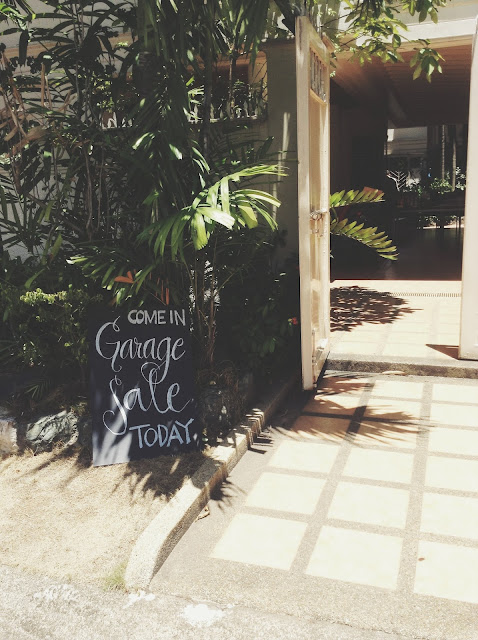 COME IN
Garage
Sale
TODAY.